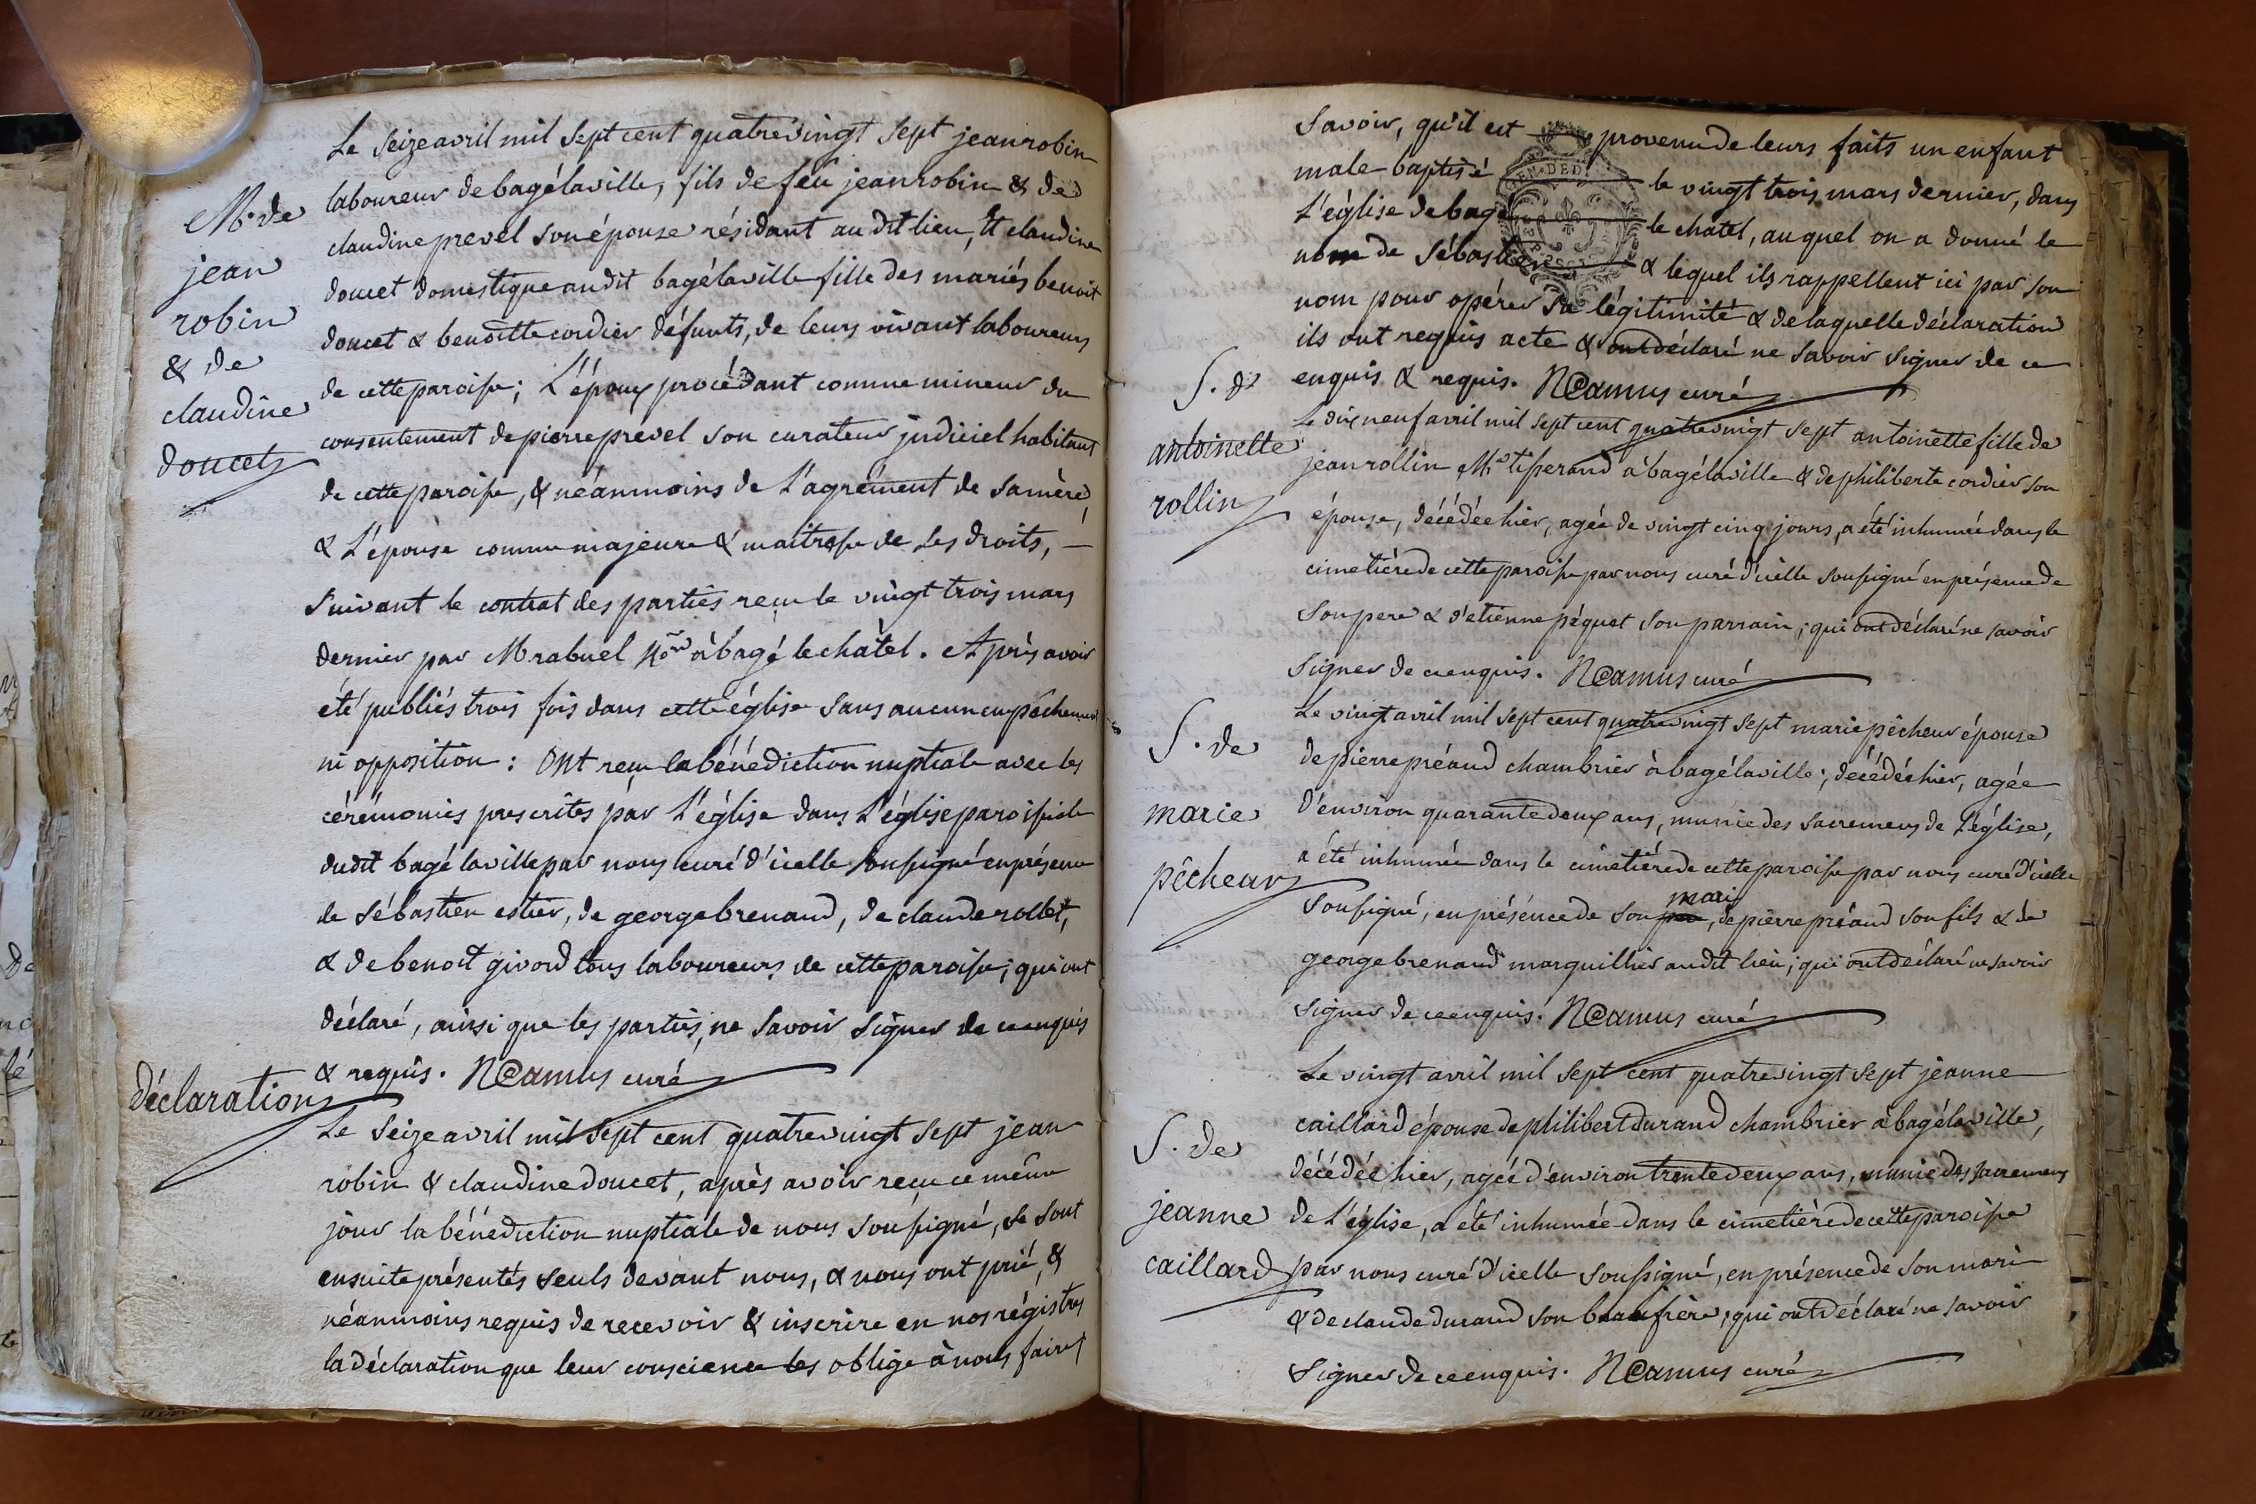 Le seize avril mil sept cent quatrevingt sept jean robin
laboureur de bagélaville, fils de feu jean robin & de
claudine prevel son épouse résidant audit lieu, Et claudine
doucet domestique audit bagélaville fille des mariés benoit
doucet & benoitte cordier défunts, de leurs vivant laboureurs
de cette paroisse; L'époux procédant comme mineur du
consentement de pierre prevel son curateur judiciel habitant
de cette paroisse, & néanmoins de L'agrément de sa mère,
& L'épouse comme majeure & maitresse de ses droits,
suivant le contrat des parties reçu le vingt trois mars
dernier par M rabuel Nore à bagé le châtel. Après avoir
été publiés trois fois dans cette église sans aucun empêchement
ni opposition: ONt reçu la bénédiction nuptiale avec les
cérémonies prescrites par L'église dans L'église paroissiale
dudit bagé laville par nous curé d'icelle soussigné en présence
de sébastien estier, de george brenaud, de claude rollet,
& de benoit givord tous laboureurs de cette paroisse; qui ont
déclaré, ainsi que les parties, ne savoir signer de ce enquis
& requis. NCamus curé
M. de
jean
robin
& de
claudine
doucet
déclaration
Le seize avril mil sept cent quatrevingt sept jean
robin & claudine doucet, après avoir reçu ce même
jour la bénédiction nuptiale de nous soussigné, se sont
ensuite présentés seuls devant nous, & nous ont prié, &
néanmoins requis de recevoir & inscrire en nos régistres
la déclaration que leur conscience les oblige à nous faire;
savoir, qu'il est provenu de leurs faits un enfant
male baptisé le vingt trois mars dernier, dans
L'église de bagé le chatel, auquel on a donné le
nom de sébastien & lequel ils rappellent ici par son
nom pour opérer sa légitimité & de laquelle déclaration
ils ont requis acte & ont déclaré ne savoir signer de ce
enquis & requis. NCamus curé
GEN. DED
S. de
antoinette
rollin
Le dix neuf avril mil sept cent quatrevingt sept antoinette fille de
jean rollin Me tisserand à bagélaville & de philiberte cordier son
épouse, décédée hier, agée de vingt cinq jours, a été inhumée dans le
cimetière de cette paroisse par nous curé d'icelle soussigné en présence de
son pere & d'etienne péquet son parrain; qui ont déclaré ne savoir
signer de ce enquis. NCamus curé
S. de
marie
pêcheur
Le vingt avril mil sept cent quatrevingt sept marie pêcheur épouse
de pierre préaud chambrier à bagélaville; décédée hier, agée
d'environ quarante deux ans, munie des sacremens de L'église,
a été inhumée dans le cimetière de cette paroisse par nous curé d'icelle
mari
soussigné, en présence de son, de pierre préaud son fils & de
george brenaud marguillier audit lieu; qui ont déclaré ne savoir
signer de ce enquis. NCamus curé
S. de
jeanne
caillard
Le vingt avril mil sept cent quatrevingt sept jeanne
caillard épouse de philibert durand chambrier à bagélaville,
décédée hier, agée d'environ trente deux ans, munie des sacremens
de L'église, a été inhumée dans le cimetière de cette paroisse
par nous curé d'icelle soussigné, en présence de son mari
& de claude durand son beaufrère; qui ont déclaré ne savoir
signer de ce enquis. NCamus curé